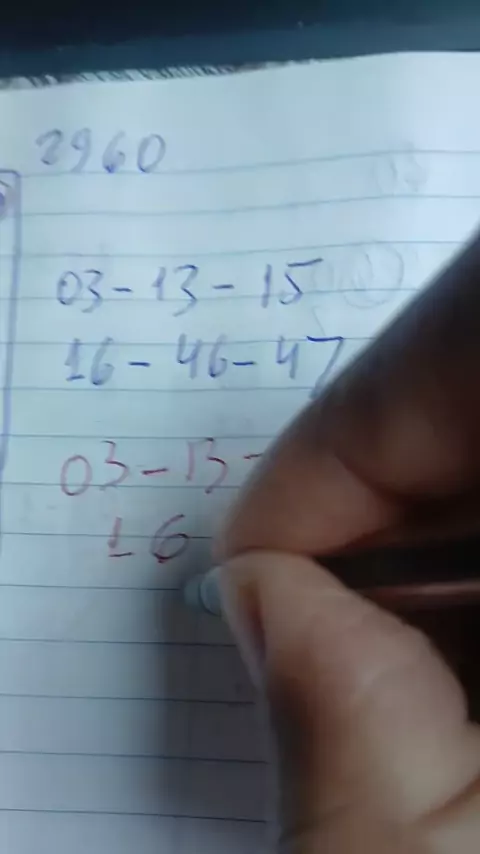 2960
03-13-15
16-46-47
03-13-
16